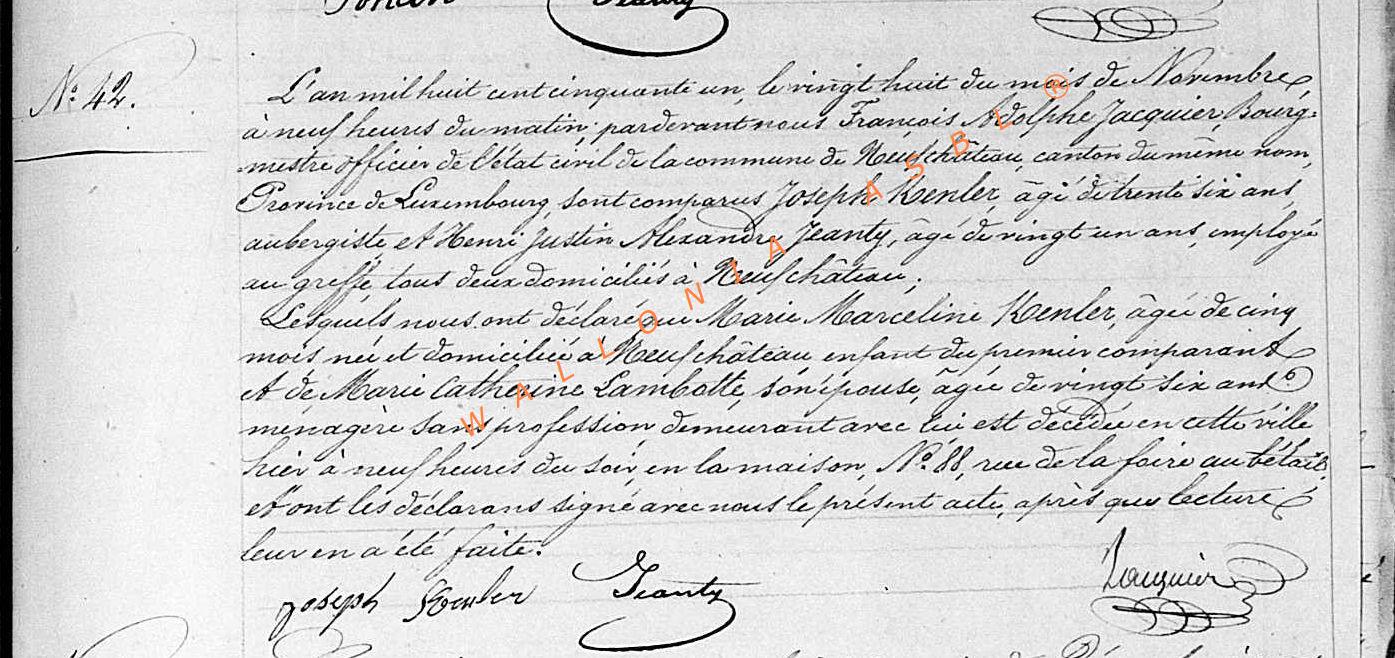 Poncin Jeanty
N.º 42.
L'an mil huit cent cinquante un, le vingt huit du mois de Novembre,
à neuf heures du matin, pardevant nous François Adolphe Jacquier, Bourg-
mestre officier de l'état civil de la commune de Neufchâteau, canton du même nom,
Province de Luxembourg, sont comparus Joseph Kenler, âgé de trente six ans,
aubergiste et Henri Justin Alexandre Jeanty, âgé de vingt un ans, employé
au greffe, tous deux domiciliés à Neufchâteau,
Lesquels nous ont déclaré que Marie Marceline Kenler, âgée de cinq
mois née et domiciliée à Neufchâteau enfant du premier comparant
et de Marie Catherine Lambotte, son épouse, âgée de vingt six ans
ménagère sans profession, demeurant avec lui est décédée en cette ville
hier à neuf heures du soir, en la maison, N.º 88, rue de la foire au bétail.
et ont les déclarans signé avec nous le présent acte, après que lecture
leur en a été faite.
Joseph Kenler Jeanty Jacquier
WALLONIA ASBL ®